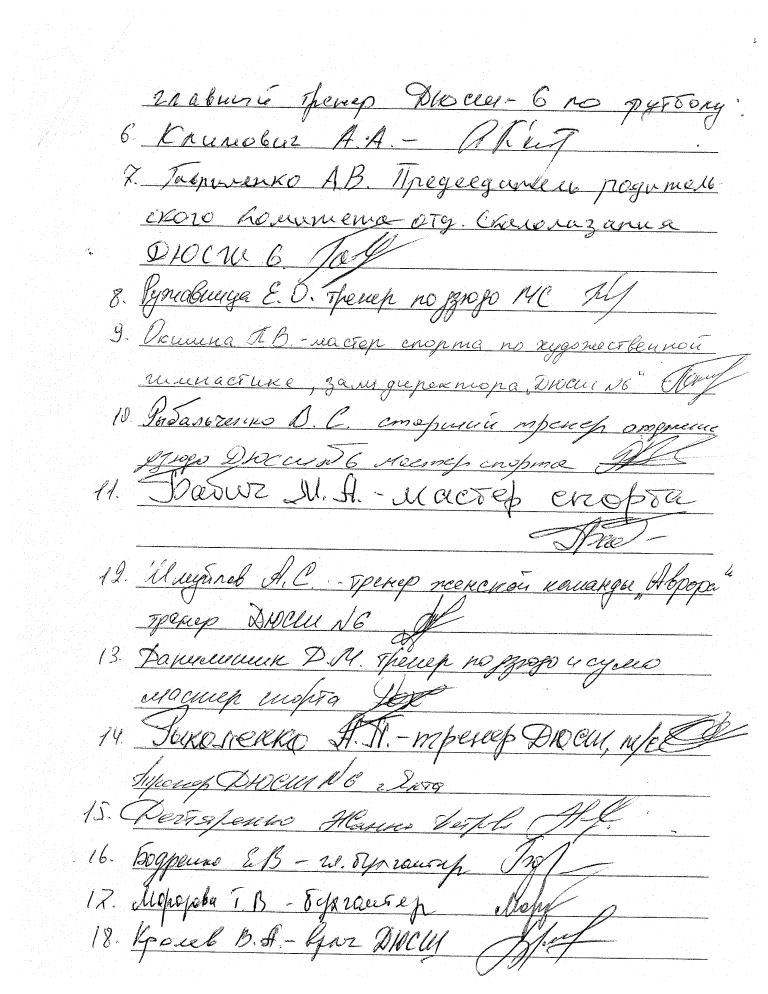 главный тренер ДЮСШ-6 по футболу
6. Климович А.А. –
7. Гавриленко А.В. Председатель родитель-
ского комитета отд. Скалолазания
ДЮСШ 6.
8. Ружавиница Е.О. тренер по дзюдо МС
9. Окишна П.В. - мастер спорта по художественной
гимнастике, зам директора „ДЮСШ №6"
10. Рыбальченко В.С. старший тренер отделение
дзюдо ДЮСШ №6 мастер спорта
11. Бабич М.А. - мастер спорта
12. А.С. - тренер женской команды „Аврора"
тренер ДЮСШ №6
13. Данилишин Д.М. тренер по дзюдо и сумо
мастер спорта
14. А.П. - тренер ДЮСШ,
тренер ДЮСШ №6 г. Ялта
15. Дегтяренко Жанна
16. Бодренко Е.В - гл. бухгалтер
17. Морозова Т.В - бухгалтер
18. Кролев В.А. - врач ДЮСШ